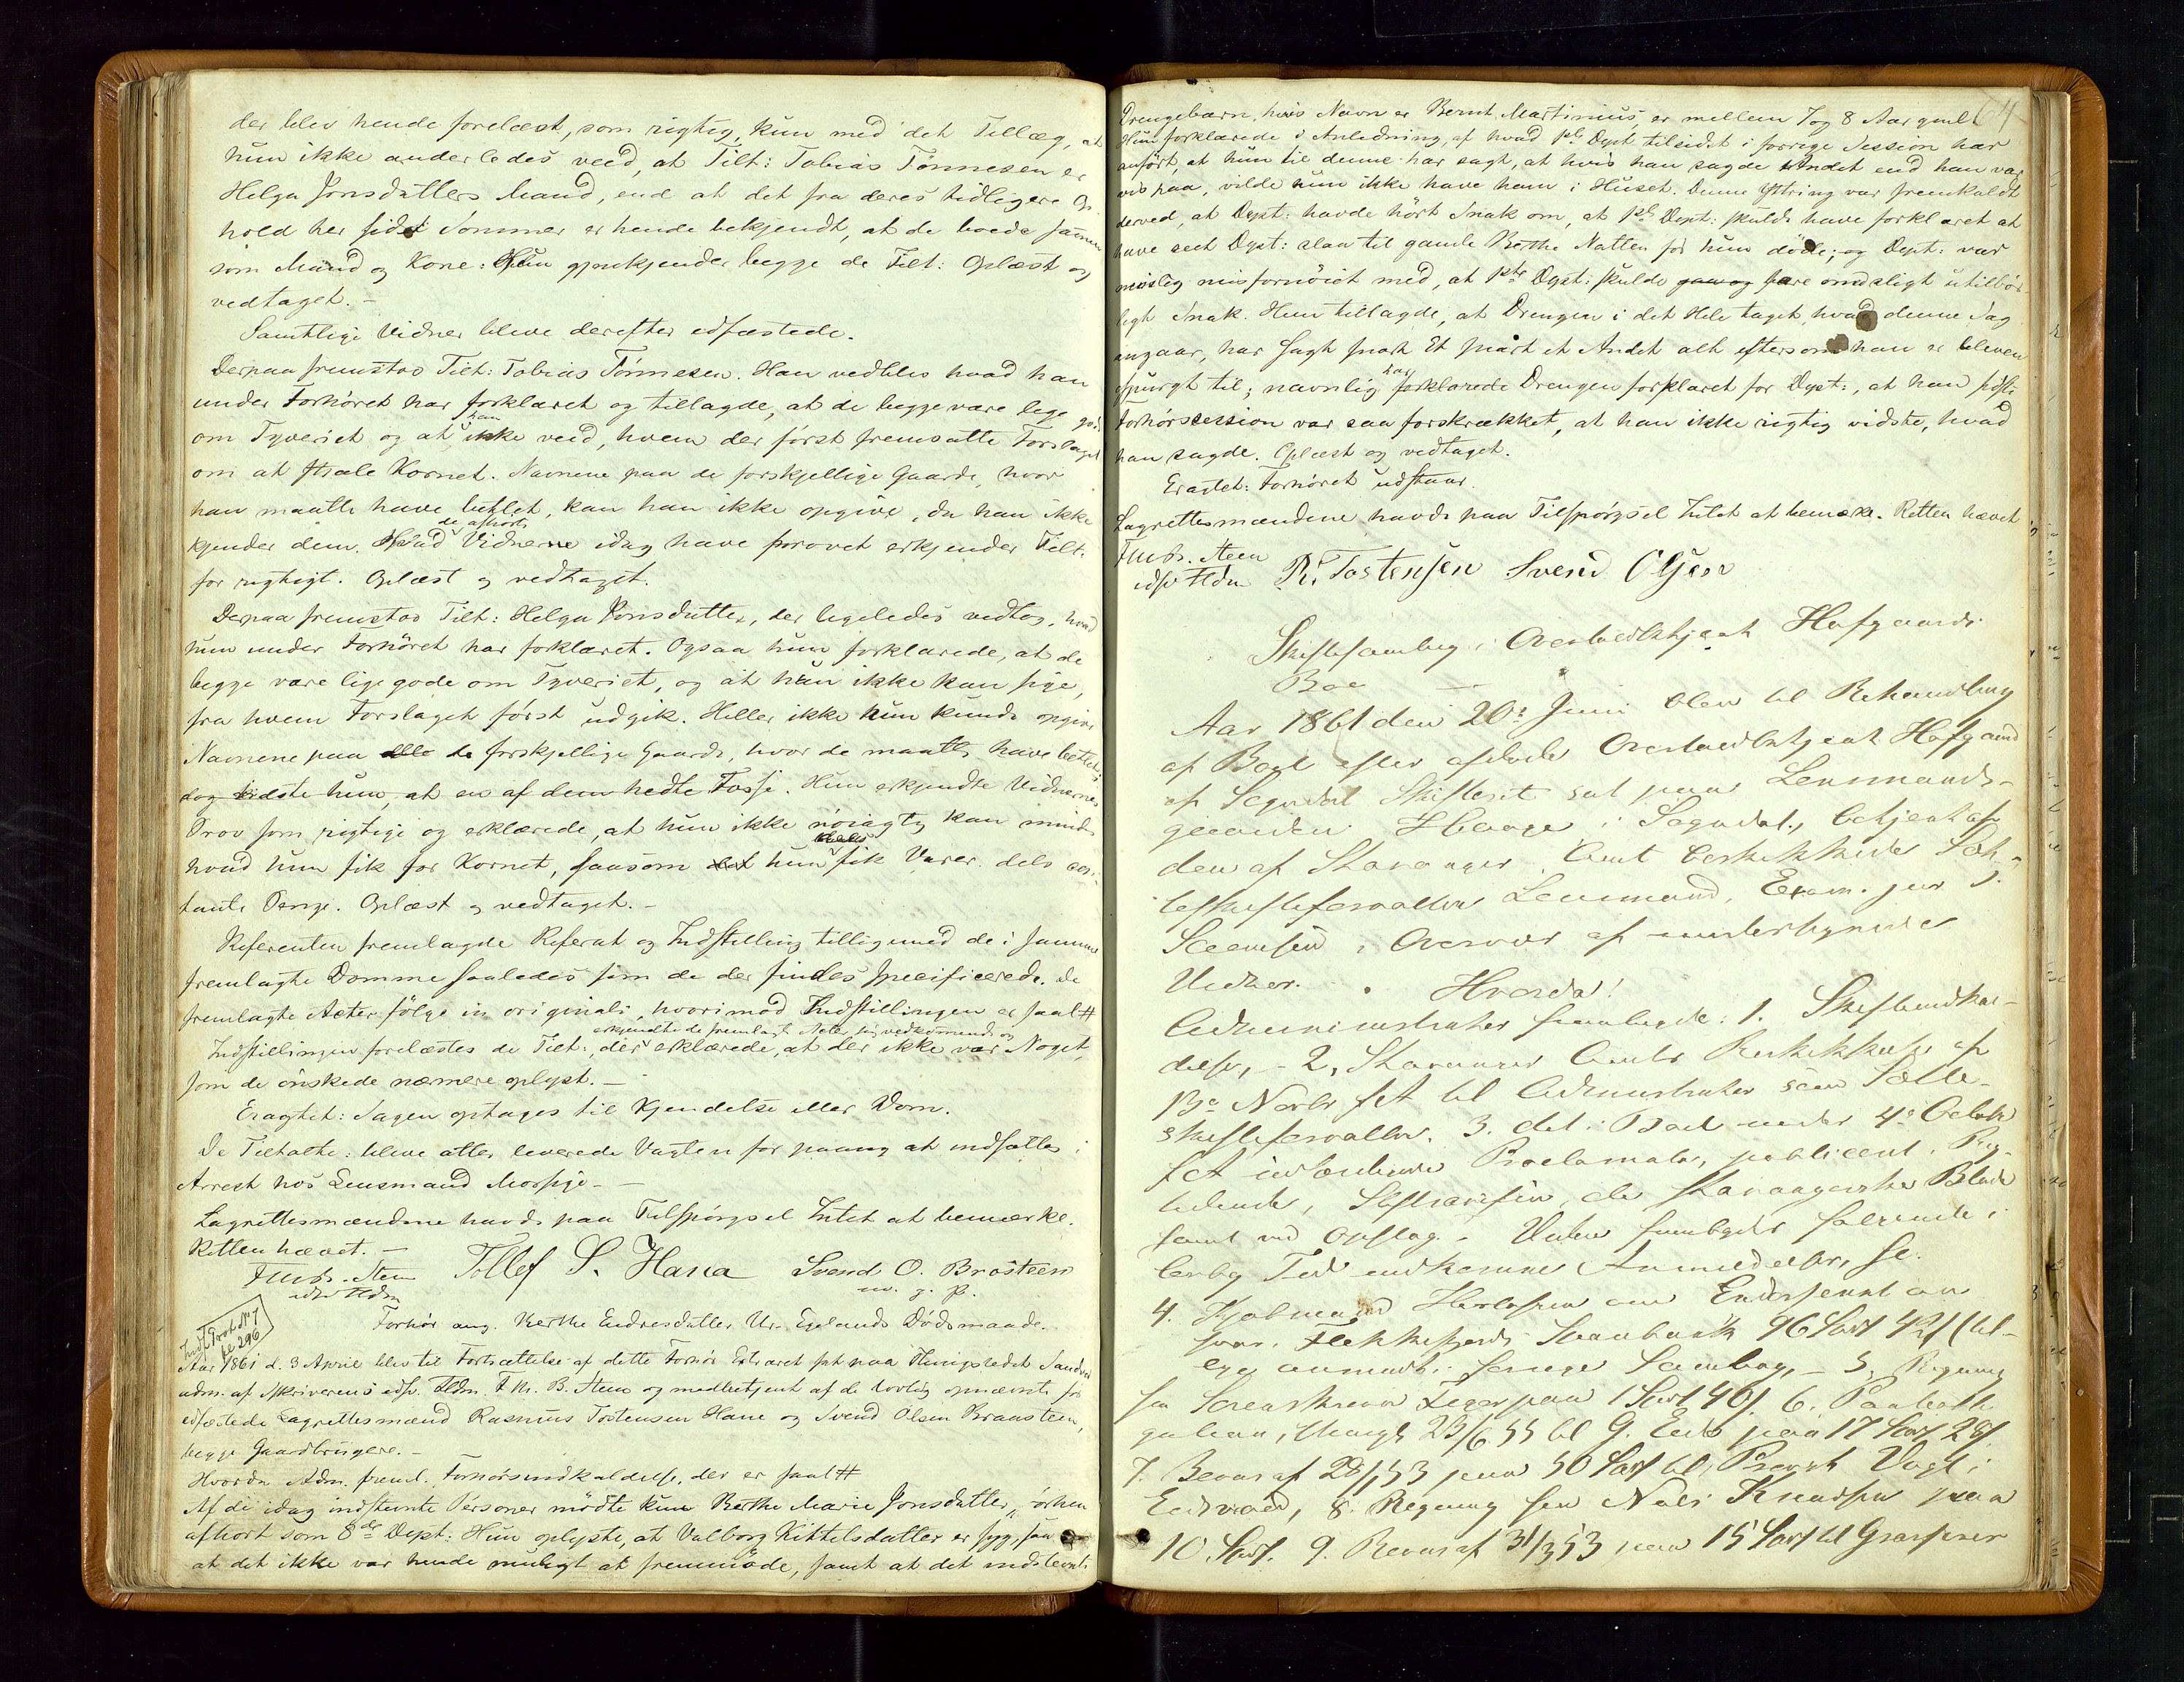 der blev hende forelæst, som rigtig, kun med det Tillæg, at
hun ikke anderledes veed, at Tilt: Tobias Tønnesen er
Helga Jonsdatters Mand, end at det fra deres tidligere Op-
hold her sidst Sommer er hende bekjendt, at de boede sammen
som Mand og Kone: Hun gjenkjender begge de Tilt: Oplæst og
vedtaget. –
Samtlige Vidner bleve derefter edfæstede.
Derpaa fremstod Tilt: Tobias Tønnesen. Han vedblev hvad han
under Forhøret har forklaret og tillagde, at de begge vare lige gode
om Tyveriet og at han ikke veed, hvem der først fremsatte Forslaget
om at stjæle Kornet. Navnene paa de forskjellige Gaarde, hvor
han maatte have betlet, kan han ikke opgive, da han ikke
kjender dem. Hvad de afhørte Vidner idag have provet erkjender Tilt.
for rigtigt. Oplæst og vedtaget.
Derpaa fremstod Tilt: Helga Jonsdatter, der ligeledes vedtog, hvad
hun under Forhøret har forklaret. Ogsaa hun forklarede, at de
begge vare lige gode om Tyveriet, og at hun ikke kan sige,
fra hvem Forslaget først udgik. Heller ikke hun kunde opgive
Navnene paa alle de forskjellige Gaarde, hvor de maatte have betlet,
dog vidste hun, at en af dem hedte Fosse. Hun erkjendte Vidnernes
Prov som rigtige og erklærede, at hun ikke nøiagtig kan mindes
hvad hun fik for Kornet, saasom det hun dels fik Varer dels con-
tante Penge. Oplæst og vedtaget. –
Referenten fremlagde Referat og Indstilling tilligemed de i samme
fremlagte Domme saaledes som de der findes specificerede. De
fremlagte Acter følge in originali, hvorimod Indstillingen er saal #
Indstillingen forelæstes de Tilt:, der erkjendte de fremlagte Acter sig vedkommende og erklærede, at der ikke var Noget,
som de ønskede nærmere oplyst. –
Eragtet: Sagen optages til Kjendelse eller Dom.
De Tiltalte: bleve atter leverede Vagten for paany at indsættes i
Arrest hos Lensmand Mossige. –
Lagrettesmændene havde paa Tilspørgsel Intet at bemærke.
Retten hævet. –
Tollef S. Hana Svend O. Brosteen
m. g. P.
Forhør ang. Berthe Endresdatter Ur-Egelands Dødsmaade.
Indf. Prot. No 7
fl 296
Aar 1861 d. 3 April blev til Fortsættelse af dette Forhør Extraret sat paa Thingstedet Sandved
adm. af Skriverens edsv. Fldm. Fr. M. B. Steen og medbetjent af de lovlig opnævnte for
edfæstede Lagrettesmænd Rasmus Tostensen Hane og Svend Olsen Braasteen,
begge Gaardbrugere. –
Hvorda Adm. freml. Forhørsindkaldelse, der er saal #
Af de idag indstevnte Personer mødte kun Berthe Marie Jonsdatter, forhen
afhørt som 8de Dept: Hun oplyste, at Valborg Kittelsdatter er syg, saa
at det ikke var hende muligt at fremmøde, samt at det indstevnte
64
Drengebarn, hvis Navn er Bernt Martinius er mellem 7 og 8 Aar gml
Hun forklarede i Anledning af hvad 1ste Dept tilsidst i forrige Session har
anført, at hun til denne har sagt, at hvis han sagde Andet end han var
vis paa, vilde hun ikke have ham i Huset. Denne Yttring var fremkaldt
derved, at Dept: havde hørt Snak om, at 1ste Dept: skulde have forklaret at
have seet Dept: slaa til gamle Berthe Natten før hun døde; og Dept: var
misfornøiet med, at 1ste Dept: skulde fare om sligt utilbør-
ligt Snak. Hun tillagde, at Drengen i det Hele taget, hvad denne Sag
angaar, har sagt snart Et snart et Andet alt eftersom han er bleven
spurgt til; navnlig har forklarede Drengen forklaret for Dept:, at han sidste
Forhørssession var saa forskrækket, at han ikke rigtig vidste, hvad
han sagde. Oplæst og vedtaget.
Eragtet: Forhøret udstaar.
Lagrettesmændene havde paa Tilspørgsel Intet at bemærke. Retten hævet
R. Tostensen Svend Olsen
Skiftesamling i Overtoldbetjent Hofgaards
Boe –
Aar 1861 den 20de Juni blev til Behandling
af Boet efter afdøde Overtoldbetjent Hofgaard
af Sogndal Skifteret sat paa Lensmands-
gaarden i Sogndal, betjent af
den af Stavanger Amt beskikkede Sæt-
teskifteforvalter Lensmand, Exam. jur
i Overvær af undertegnede
Vidner. Hvorda!
Administrator fremlagde: 1. Skifteindkal-
delse, – 2, Stavanger Amts Beskikkelse af
13de Novbr f. A. til Administrator som Sætte-
skifteforvalter. 3. det i Boet under 4de Octobr
f. A. udfærdigede Proclamata, publiceret i Rigs-
tidende, de Stavangerske Blade
samt ved Opslag. – Videre fremlagdes følgende i
lovlig Tid indkomne Anmeldelser, se.
4. Endossement an-
svar. Flekkefjords Sparebank 96 Spd 42 s (til-
lige anmeldt i forrige Samling, – 5. Regning
fra paa 1 Spd 40 s. 6. Panteobli-
gation, thingl 23/6 55 til G. paa 17 Spd 28 s.
7. Bevis af 28/1 53 paa 50 Spd til Provst Vogt i
8. Regning fra Niels Knudsen paa
10 Spd. 9. Bevis af 31/3 53 paa 15 Spd til